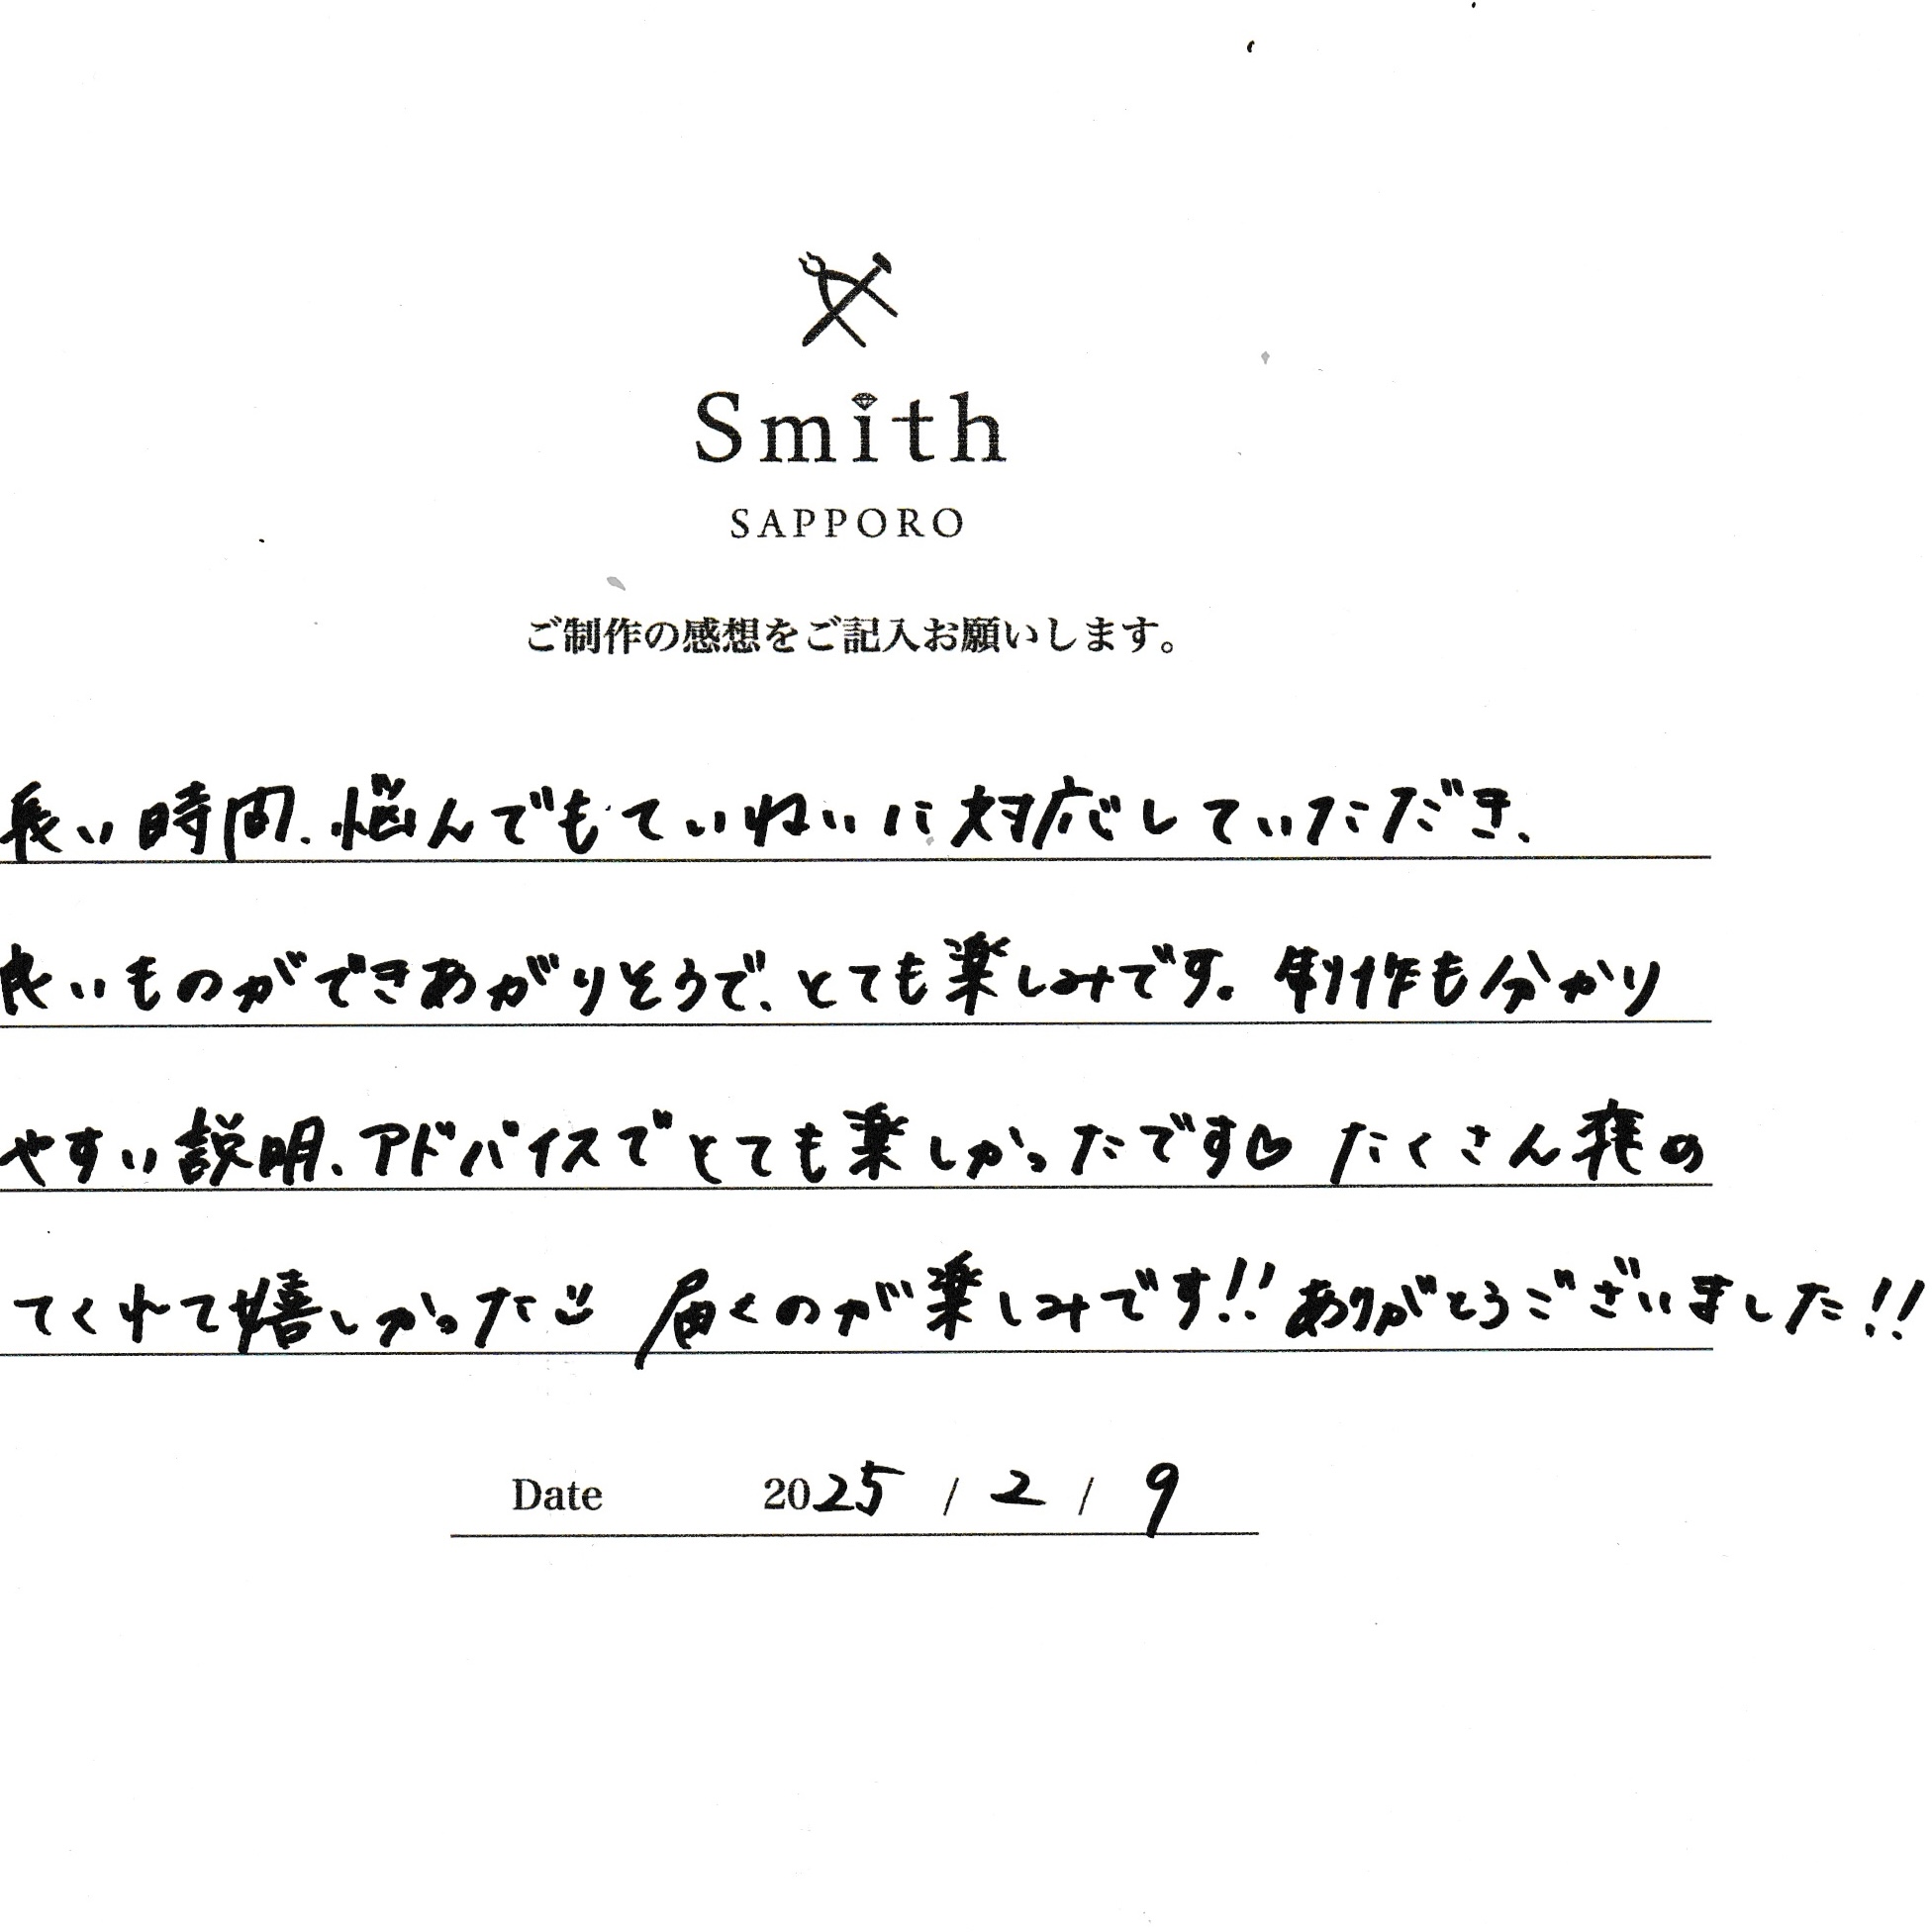 Smith
SAPPORO
ご制作の感想をご記入お願いします。
長い時間、悩んでもていねいに対応していただき、
良いものができあがりそうで、とても楽しみです。制作も分かり
やすい説明、アドバイスでとても楽しかったです♡ たくさんの
てくれて嬉しかった 届くのが楽しみです!! ありがとうございました!!
Date 2025 / 2 / 9